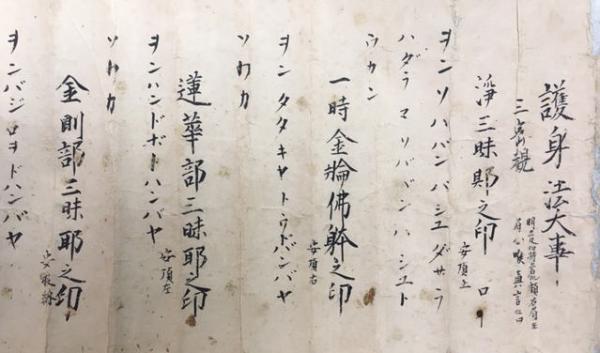 護身法大事
三密観
浄三昧耶之印 安頂上
ヲンソハハンバシユダサラ
ハダラマソハハンハシユト
ウカン
一時金輪佛躰之印 安頂右
ヲンタタキヤトウドバンバヤ
ソワカ
蓮華部三昧耶之印 安頂左
ヲンハンドボドハンバヤ
ソワカ
金剛部三昧耶之印
ヲンバジロヲドハンバヤ